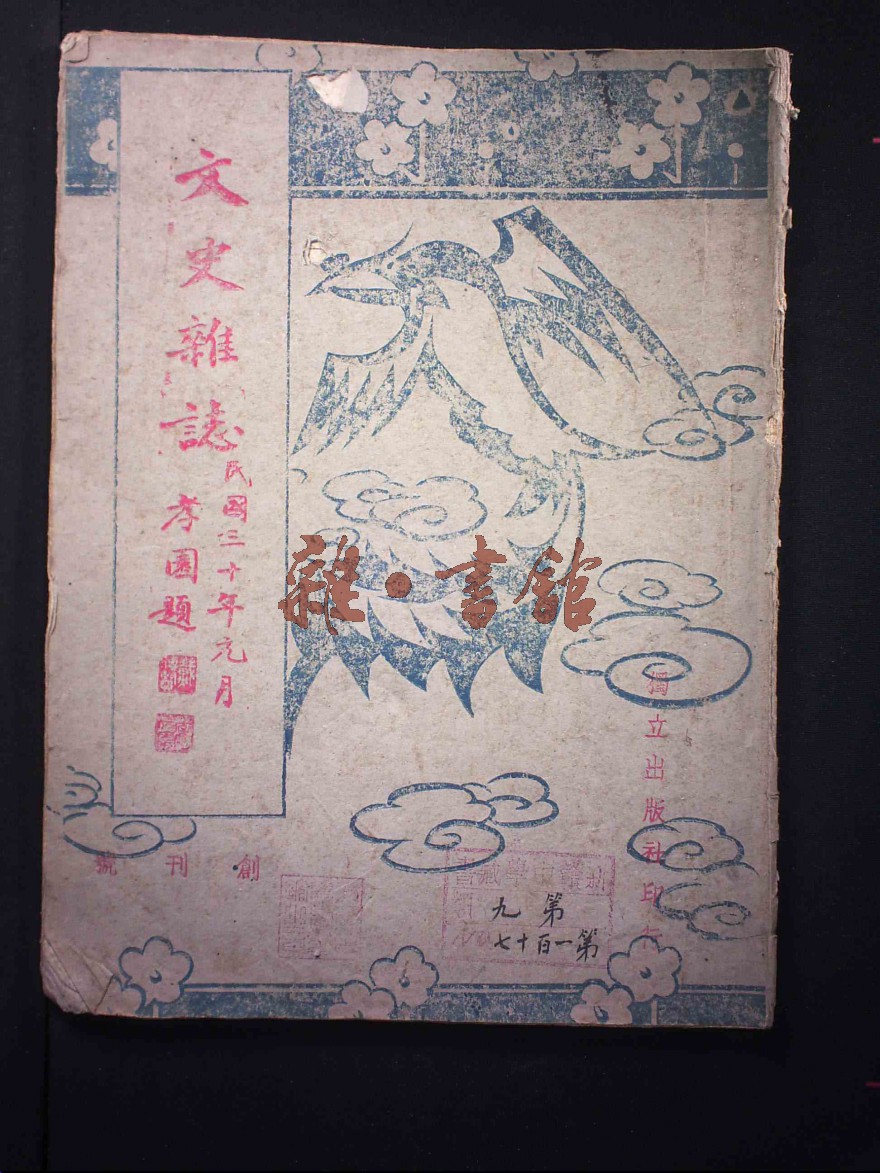 文史雜誌
民國三十年元月
孝園題
創刊號
獨立出版社印行
雜·書館
第九
第一百十七